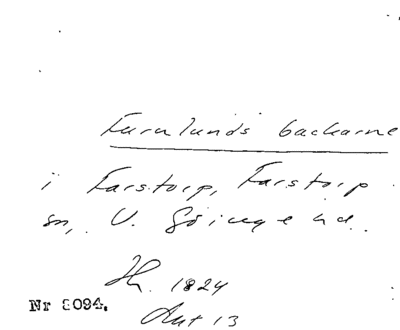 Furulunds backarne
i Farstorp, Farstorp
sn, V. Göinge hd.
Hr. 1824
Nr 8094.
Aut 13